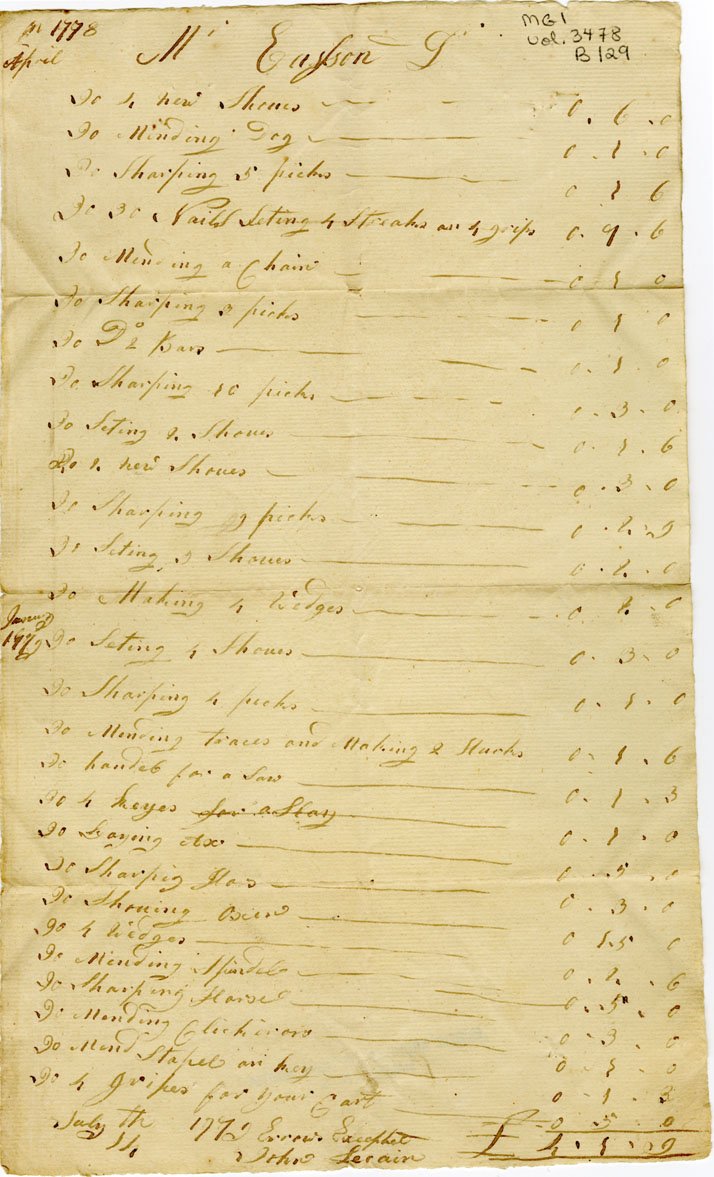 1778
April
Mr Easson Dr
MG1
Vol. 3478
B129
Do 4 new Shoues 0 . 6 . 0
Do Minding Dog 0 . 1 . 0
Do Sharping 5 picks 0 1 6
Do 30 Nails Seting 4 Streaks an 4 grips 0 . 9 . 6
Do Mending a Chain 0 . 1 0
Do Sharping 3 picks 0 1 0
Do Do 2 Bars 0 . 1 . 0
Do Sharping 10 picks 0 . 3 . 0
Do Seting 2 Shoues 0 . 1 . 6
Do 2 new Shoues 0 . 3 . 0
Do Sharping 9 picks 0 . 2 . 9
Do Seting 3 Shoues 0 . 2 . 0
Do Making 4 Wedges 0 . 2 . 0
January
1779 Do Seting 4 Shoues 0 . 3 . 0
Do Sharping 4 picks 0 . 1 . 0
Do Mending traces and Making 2 0 . 1 . 6
Do handel for a Saw 0 . 1 . 3
Do 4 Keyes for a Stay 0 . 1 . 0
Do Laying Ax 0 . 5 . 0
Do Sharpig 0 . 3 . 0
Do Shouing Oxen 0 15 0
Do 4 Wedges 0 . 2 . 6
Do Mending Spindel 0 . 5 . 0
Do Sharping 0 . 3 . 0
Do Mending 0 . 1 . 0
Do Mend Stapel an key 0 . 1 . 3
Do 4 gripes for your Cart 0 . 5 . 0
July th Errors Excepted £ 4 . 1 . 9
John Lecain